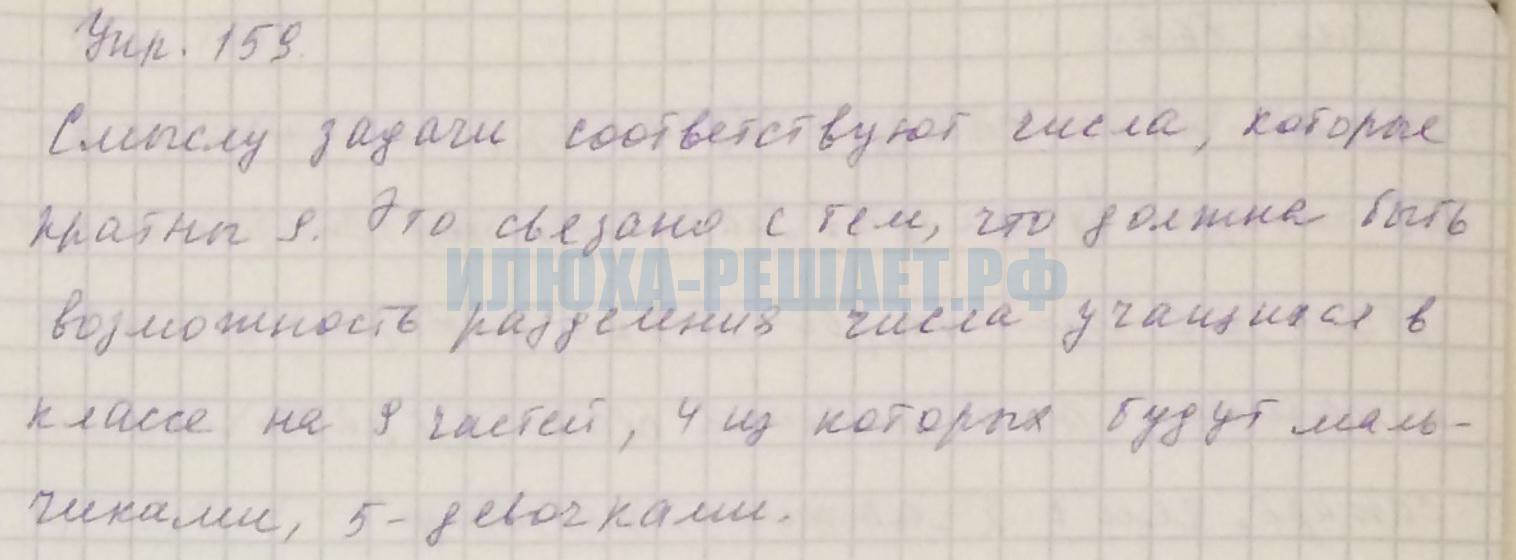 Упр. 159.
Смыслу задачи соответствуют числа, которые
кратны 9. Это связано с тем, что должна быть
ИЛЮХА-РЕШАЕТ.РФ
возможность разделения числа учащихся в
классе на 9 частей, 4 из которых будут маль-
чиками, 5 - девочками.